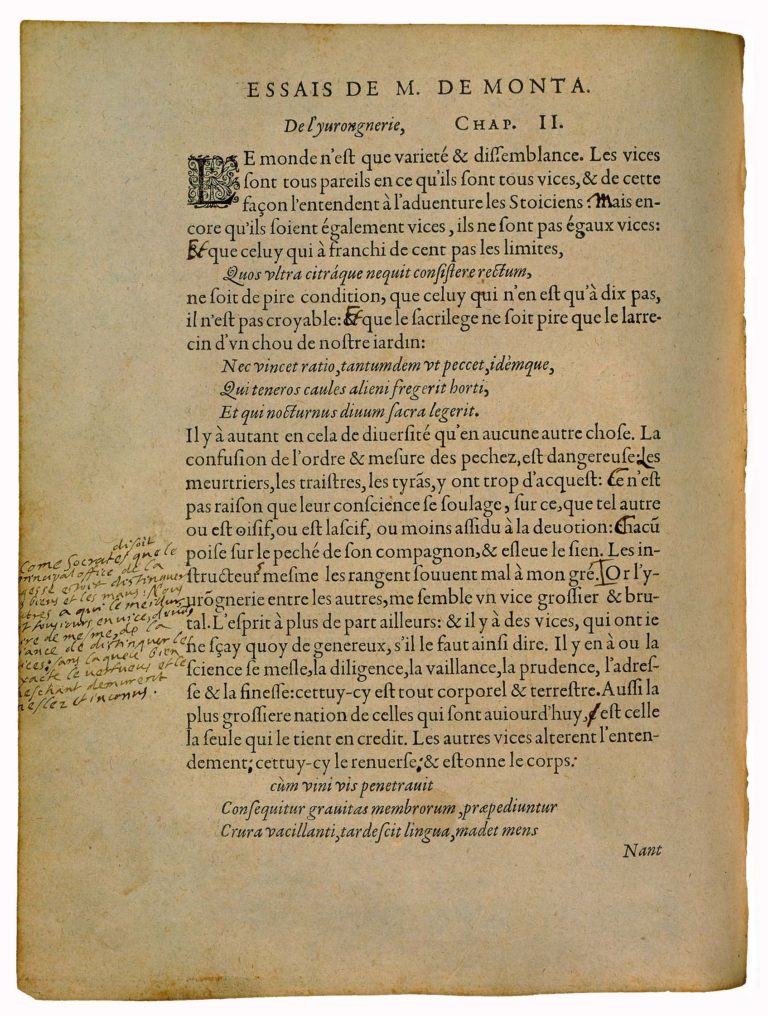 ESSAIS DE M. DE MONTA.
De l'yurongnerie, CHAP. II.
LE monde n'est que varieté & dissemblance. Les vices
sont tous pareils en ce qu'ils sont tous vices, & de cette
façon l'entendent à l'aduenture les Stoiciens : Mais en-
core qu'ils soient également vices, ils ne sont pas égaux vices:
Et que celuy qui à franchi de cent pas les limites,
Quos vltra citráque nequit consistere rectum,
ne soit de pire condition, que celuy qui n'en est qu'à dix pas,
il n'est pas croyable: Et que le sacrilege ne soit pire que le larre-
cin d'vn chou de nostre iardin:
Nec vincet ratio, tantumdem vt peccet, idémque,
Qui teneros caules alieni fregerit horti,
Et qui nocturnus diuum sacra legerit.
Il y à autant en cela de diuersité qu'en aucune autre chose. La
confusion de l'ordre & mesure des pechez, est dangereuse: Les
meurtriers, les traistres, les tyrãs, y ont trop d'acquest: Ce n'est
pas raison que leur conscience se soulage, sur ce, que tel autre
ou est oisif, ou est lascif, ou moins assidu à la deuotion: Chacũ
poise sur le peché de son compagnon, & esleue le sien. Les in-
structeurs mesme les rangent souuent mal à mon gré. Or l'y-
urõgnerie entre les autres, me semble vn vice grossier & bru-
tal. L'esprit à plus de part ailleurs: & il y à des vices, qui ont ie
ne sçay quoy de genereux, s'il le faut ainsi dire. Il y en à ou la
science se mesle, la diligence, la vaillance, la prudence, l'adres-
se & la finesse: cettuy-cy est tout corporel & terrestre. Aussi la
plus grossiere nation de celles qui sont auiourd'huy, est celle
la seule qui le tient en credit. Les autres vices alterent l'enten-
dement; cettuy-cy le renuerse; & estonne le corps:
cùm vini vis penetrauit
Consequitur grauitas membrorum, præpediuntur
Crura vacillanti, tardescit lingua, madet mens
Nant
disoit
Come Socrates que le
principal office de la
gesse estoit distinguer
s biens et les maus. Nous
utres a qui le meillur
est tousiours en vice, devons
ire de mesme de la
iance de distinguer les
ices: sans laquelle bien
xacte le vertueus et le
eschant demurent
eslez et inconus.